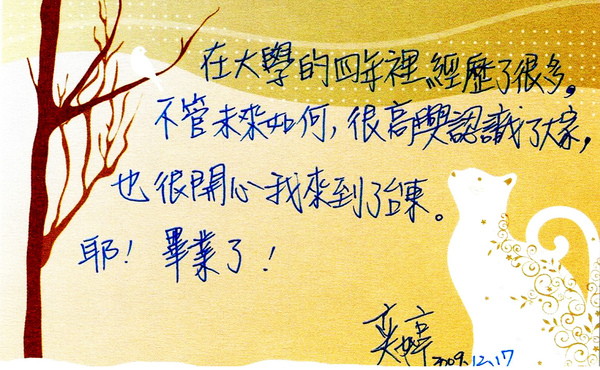 在大學的四年裡經歷了很多。
不管未來如何，很高興認識了大家，
也很開心我來到了台東。
耶！畢業了！
婷
2009.12.17